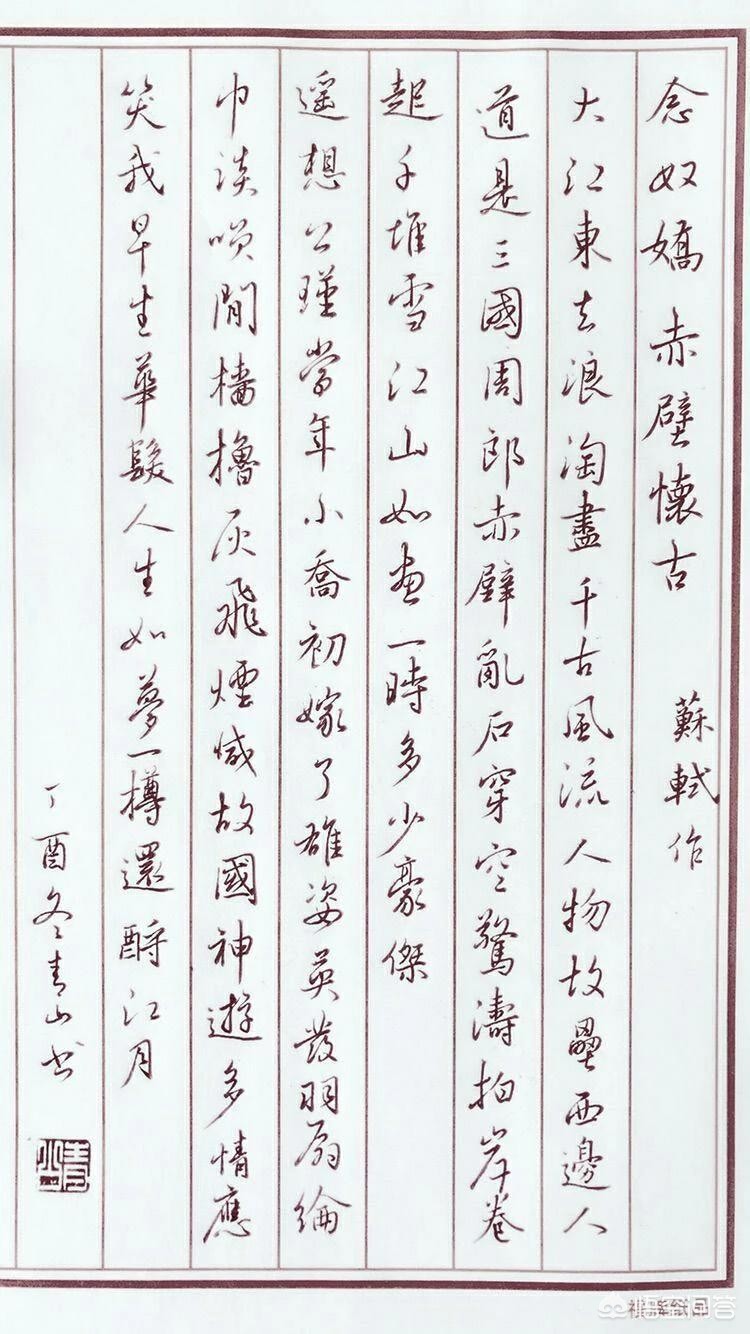 念奴嬌赤壁懷古 蘇軾作
大江東去浪淘盡千古風流人物故壘西邊人
道是三國周郎赤壁亂石穿空驚濤拍岸卷
起千堆雪江山如畫一時多少豪傑
遥想公瑾當年小喬初嫁了雄姿英發羽扇綸
巾談唄間檣櫓灰飛煙滅故國神遊多情應
笑我早生華髮人生如夢一樽還酹江月
丁酉冬青山书
青山
悟空问答